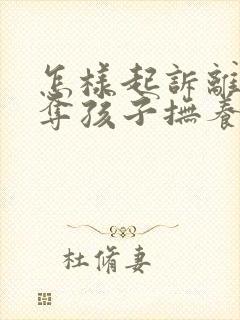 怎樣起訴離
奪孩子撫養
杜脩妻